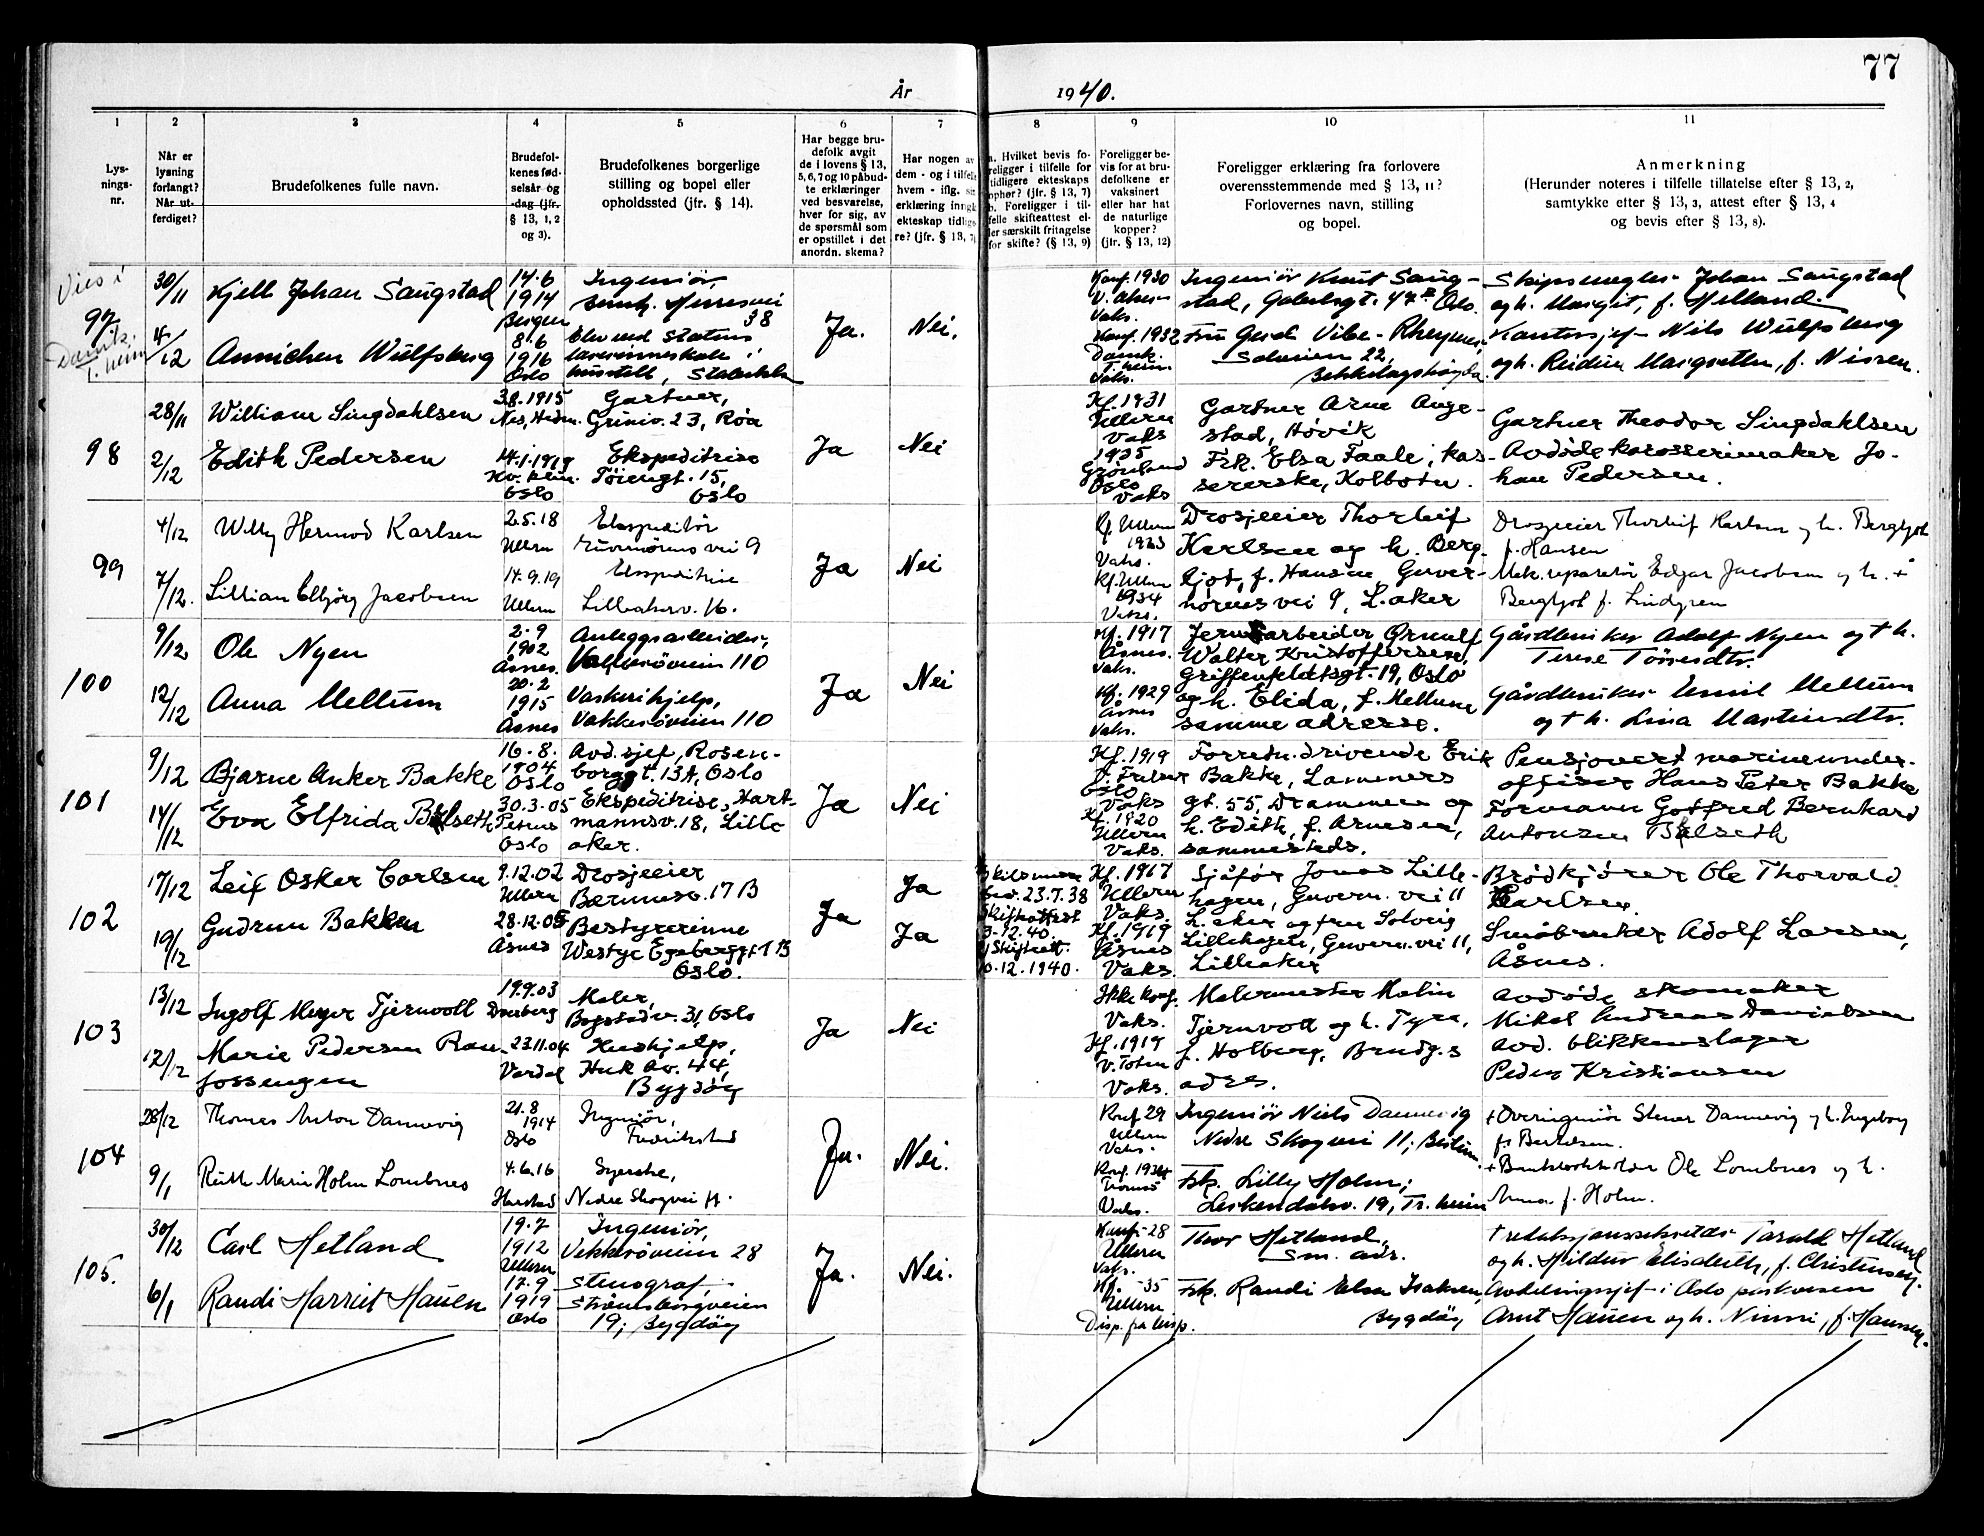 77
År 1940.
1
2
3
4
5
6
7
8
9
10
11
Lys-
nings-
nr.
Når er
lysning
forlangt?
Når ut-
ferdiget?
Brudefolkenes fulle navn.
Brudefol-
kenes fød-
selsår og
-dag (jfr.
§ 13, 1, 2
og 3).
Brudefolkenes borgerlige
stilling og bopel eller
opholdssted (jfr. § 14).
Har begge bru-
defolk avgit
de i lovens § 13,
5, 6, 7 og 10 påbud-
te erklæringer
ved besvarelse,
hver for sig, av
de spørsmål som
er opstillet i det
anordn. skema?
Har nogen av
dem - og i tilfelle
hvem - iflg. sin
erklæring inngå
ekteskap tidlige
re? (jfr. § 13, 7)
a. Hvilket bevis fo-
religger i tilfelle for
tidligere ekteskaps
ophør? (jfr. § 13, 7)
b. Foreligger i til-
felle skifteattest el-
ler særskilt fritagelse
for skifte? (§ 13, 9)
Foreligger be-
vis for at bru-
defolkene er
vaksinert
eller har hat
de naturlige
kopper?
(jfr. § 13, 12)
Foreligger erklæring fra forlovere
overensstemmende med § 13, 11?
Forlovernes navn, stilling
og bopel.
Anmerkning
(Herunder noteres i tilfelle tillatelse efter § 13, 2,
samtykke efter § 13, 3, attest efter § 13, 4
og bevis efter § 13, 8).
Vies i
97
30/11
Kjell Johan Saugstad
14.6
1914
Bergen
Ingeniør,
38
4/12
Annichen Wulfsberg
8.6
1916
Oslo
Elev ved Statens
lærerinneskole i
husstell, Stabekk
Ja.
Nei.
Konf. 1930
V. Aker
Vaks.
Konf. 1932
Domk.
T.heim.
Vaks.
Ingeniør Knut Saug-
stad, Oslo.
Fru Gerd Vibe-
Solveien 22,
Bekkelagshøgda
Skipsmegler Johan Saugstad
og h. Margit, f. Helland.
Kontorsjef Nils Wulfsberg
og h. Reidun Margrethe, f. Nissen.
98
28/11
William Singdahlsen
3.8.1915
Nes, Hedm.
Gartner,
Griniv. 23, Røa
2/12
Edith Pedersen
14.1.1919
Kv. klin.
Oslo
Ekspeditrise
Tøiengt. 15,
Oslo
Ja
Nei
Kf. 1931
Ullern
Vaks
1935
Grønland
Oslo
Vaks
Gartner Arne Ange-
stad, Høvik
Frk. Elsa Faale, kas-
sererske, Kolbotn.
Gartner Theodor Singdahlsen
Avdøde karosserimaker Jo-
han Pedersen.
99
4/12
Willy Hermod Karlsen
2.5.18
Ullern
Ekspeditør
vei 9
7/12.
Lillian Elbjørg Jacobsen
14.9.19
Ullern
Ekspeditrise
Lilleakerv. 16.
Ja
Nei
Kf. Ullern
1933
Vaks.
Kf. Ullern
1934
Vaks.
Drosjeeier Thorleif
Karlsen og h. Berg-
ljot, f. Hansen Guver-
nørens vei 9, L.aker
Drosjeeier Thorleif Karlsen og h. Bergljot
f. Hansen
Mek. reparatør Edgar Jacobsen og h. +
Bergljot f. Lindgren
100
9/12
Ole Nyen
2.9
1902
Åsnes.
Anleggsarbeider,
Vækkerøveien 110
12/12
Anna Mellum
20.2
1915
Åsnes
Vaskerihjelp,
Vækkerøveien 110
Ja
Nei
Kf. 1917
Åsnes.
Vaks.
Kf. 1929
Åsnes
Vaks.
Jernarbeider Ørnulf
Walter Kristoffersen,
Griffenfeldtsgt. 19, Oslo
og h. Elida, f. Mellum
samme adresse.
Gårdbruker Adolf Nyen og + h.
Terese Tørresdtr.
Gårdbruker Emil Mellum
og + h. Lina Martinsdtr.
101
9/12
Bjarne Anker Bakke
16.8.
1904
Oslo
Avd. sjef, Rosen-
borggt. 13A, Oslo
14/12
Eva Elfrida Bølseth
30.3.05
Petrus
Oslo
Ekspeditrise, Hart-
mannsv. 18, Lille
aker.
Ja
Nei
Kf. 1919
Oslo
Vaks
Kf. 1920
Ullern
Vaks.
Forretn.drivende Erik
Bakke, Lammers
gt. 55, Drammen og
h. Edith, f. Arnesen,
sammesteds.
Pensjonert marineunder-
offiser Hans Peter Bakke
Formann Gotfred Bernhard
Antonsen Bølseth
102
17/12
Leif Oskar Carlsen
9.12.02
Ullern
Drosjeeier
Bærumsv. 17 B
19/12
Gudrun Bakken
28.12.05
Åsnes
Bestyrerinne
Westye Egebergsgt.
Oslo.
Ja
Ja
Ja
23.7.38
Skifteattest
3-12.40.
Skifteatt.
10.12.1940.
Kf. 1917
Ullern
Vaks.
Kf. 1919
Åsnes
Vaks.
Sjåfør Jonas Lille-
hagen, Guvern. vei 11
L.aker og fru Solveig
Lillehagen, Guvern. vei 11,
Lilleaker
Brødkjører Ole Thorvald
Karlsen.
Småbruker Adolf Larsen,
Åsnes.
103
13/12
Ingolf Meyer Tjernvoll
19.9.03
Maler,
Bogstadv. 31, Oslo
17/12
Marie Pedersen Rau-
fossengen
23.11.04
Vardal
Hushjelp,
Huk Av. 44,
Bygdøy
Ja
Nei
Ikke konf.
Vaks.
Kf. 1919
V. Toten
Vaks.
Malermester Malin
Tjernvoll og h. Tyra,
f. Holberg, Brudg.s
adrs.
Avdøde skomaker
Mikal Andreas Danielsen
avd. blikkenslager
Peder Kristiansen
104
28/12
Thomas Anton Dannevig
21.8
1914
Oslo
Ingeniør,
Fredrikstad
9/1
Ruth Marie Holm Lombnes
4.6.16
Harstad
Syerske,
Nedre Skogvei 11.
Ja.
Nei.
Konf 29
Ullern
Vaks.
Konf. 1934
Tromsø
Vaks.
Ingeniør Niels Dannevig
Nedre Skogvei 11, Bestum.
Frk. Lilly Holm,
19, Tr.heim
+ Overingeniør Stener Dannevig og h. Ingeborg
f. Bertelsen.
+ Bankbokholder Ole Lombnes og h.
Anna f. Holm.
105.
30/12
Carl Hetland
19.7
1912
Ullern
Ingeniør,
Vekkerøveien 28
6/1
Randi Harriet Hauen
17.9
1919
Oslo
Stenograf,
Strømsborgveien
19, Bygdøy
Ja.
Nei.
Konf. 28
Ullern
Vaks.
Kf. -35
Ullern
Disp. fra lysp.
Thor Hetland,
sm. adr.
Frk. Randi Elsa Isaksen,
Bygdøy
+ redaksjonssekretær Tarald Hetland
og h. Hildur Elisabeth, f. Christensen.
Avdelingssjef i Oslo
Arnt Hauen og h. Ninni, f. Hansen.